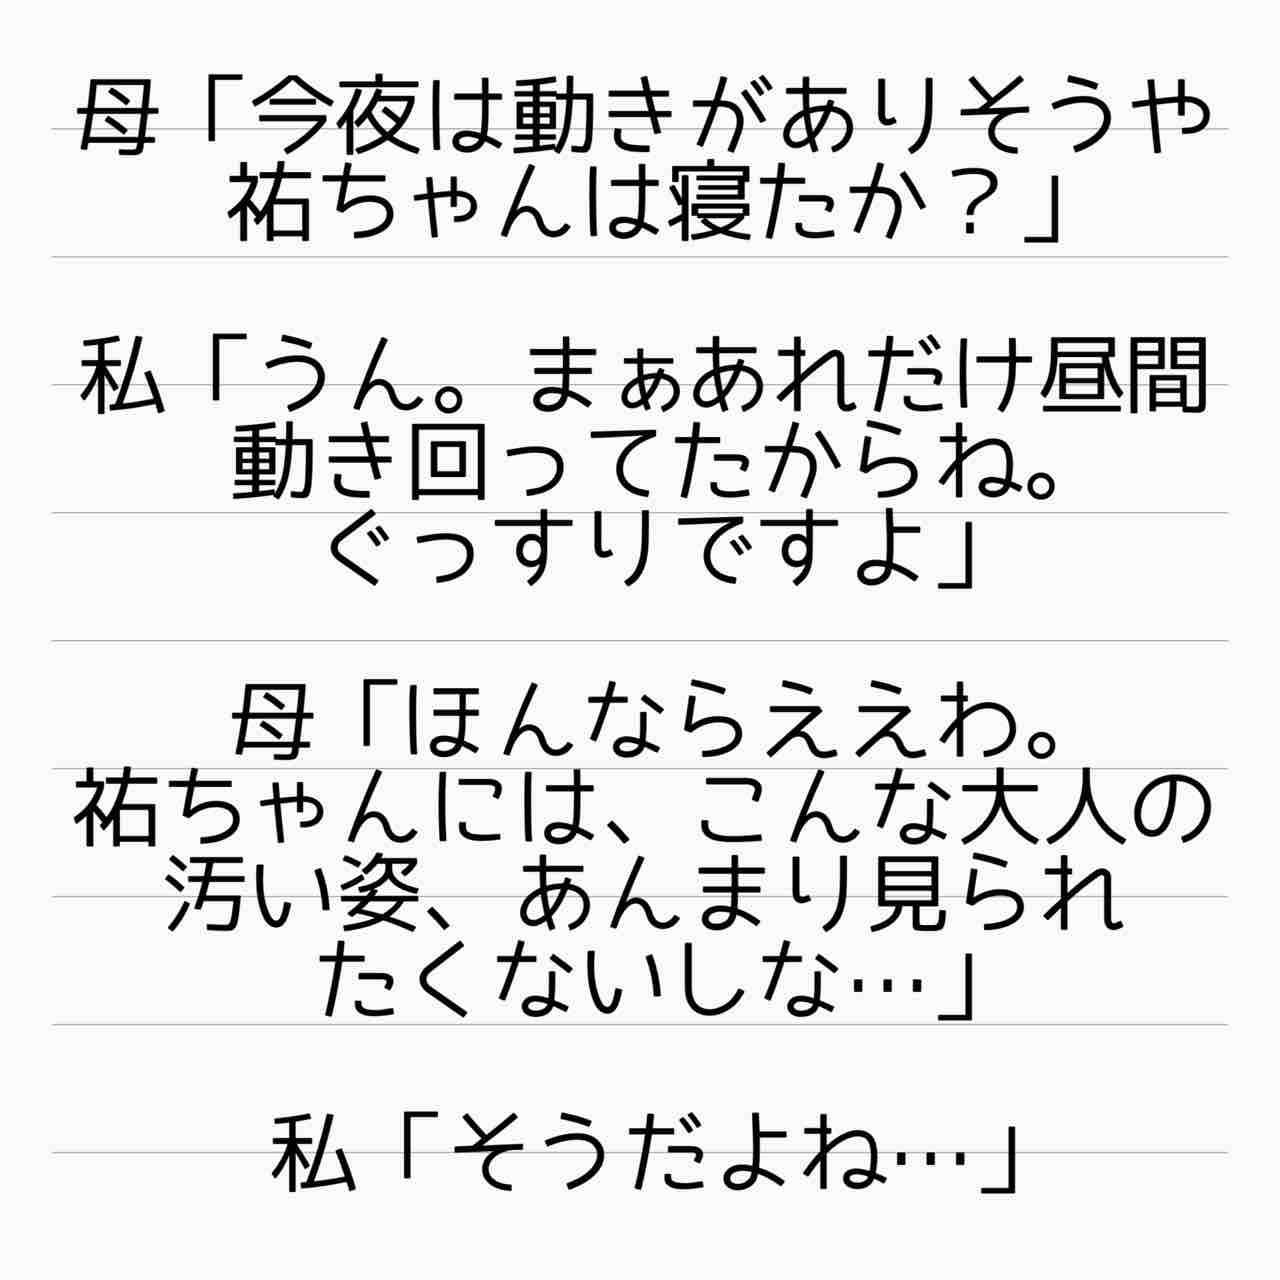 母「今夜は動きがありそうや
祐ちゃんは寝たか？」
私「うん。まぁあれだけ昼間
動き回ってたからね。
ぐっすりですよ」
母「ほんならええわ。
祐ちゃんには、こんな大人の
汚い姿、あんまり見られ
たくないしな…」
私「そうだよね…」